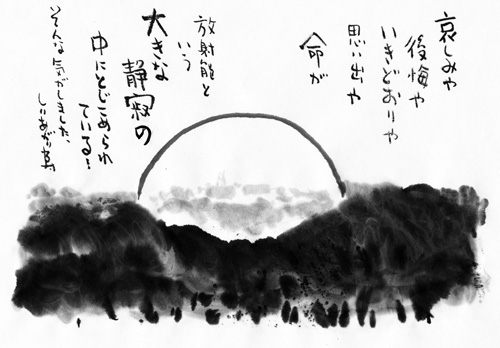 哀しみや
後悔や
いきどおりや
思い出や
命が
放射能と
いう
大きな
静寂の
中にとじこめられ
ている…
そんな気がしました。
しりあがり寿